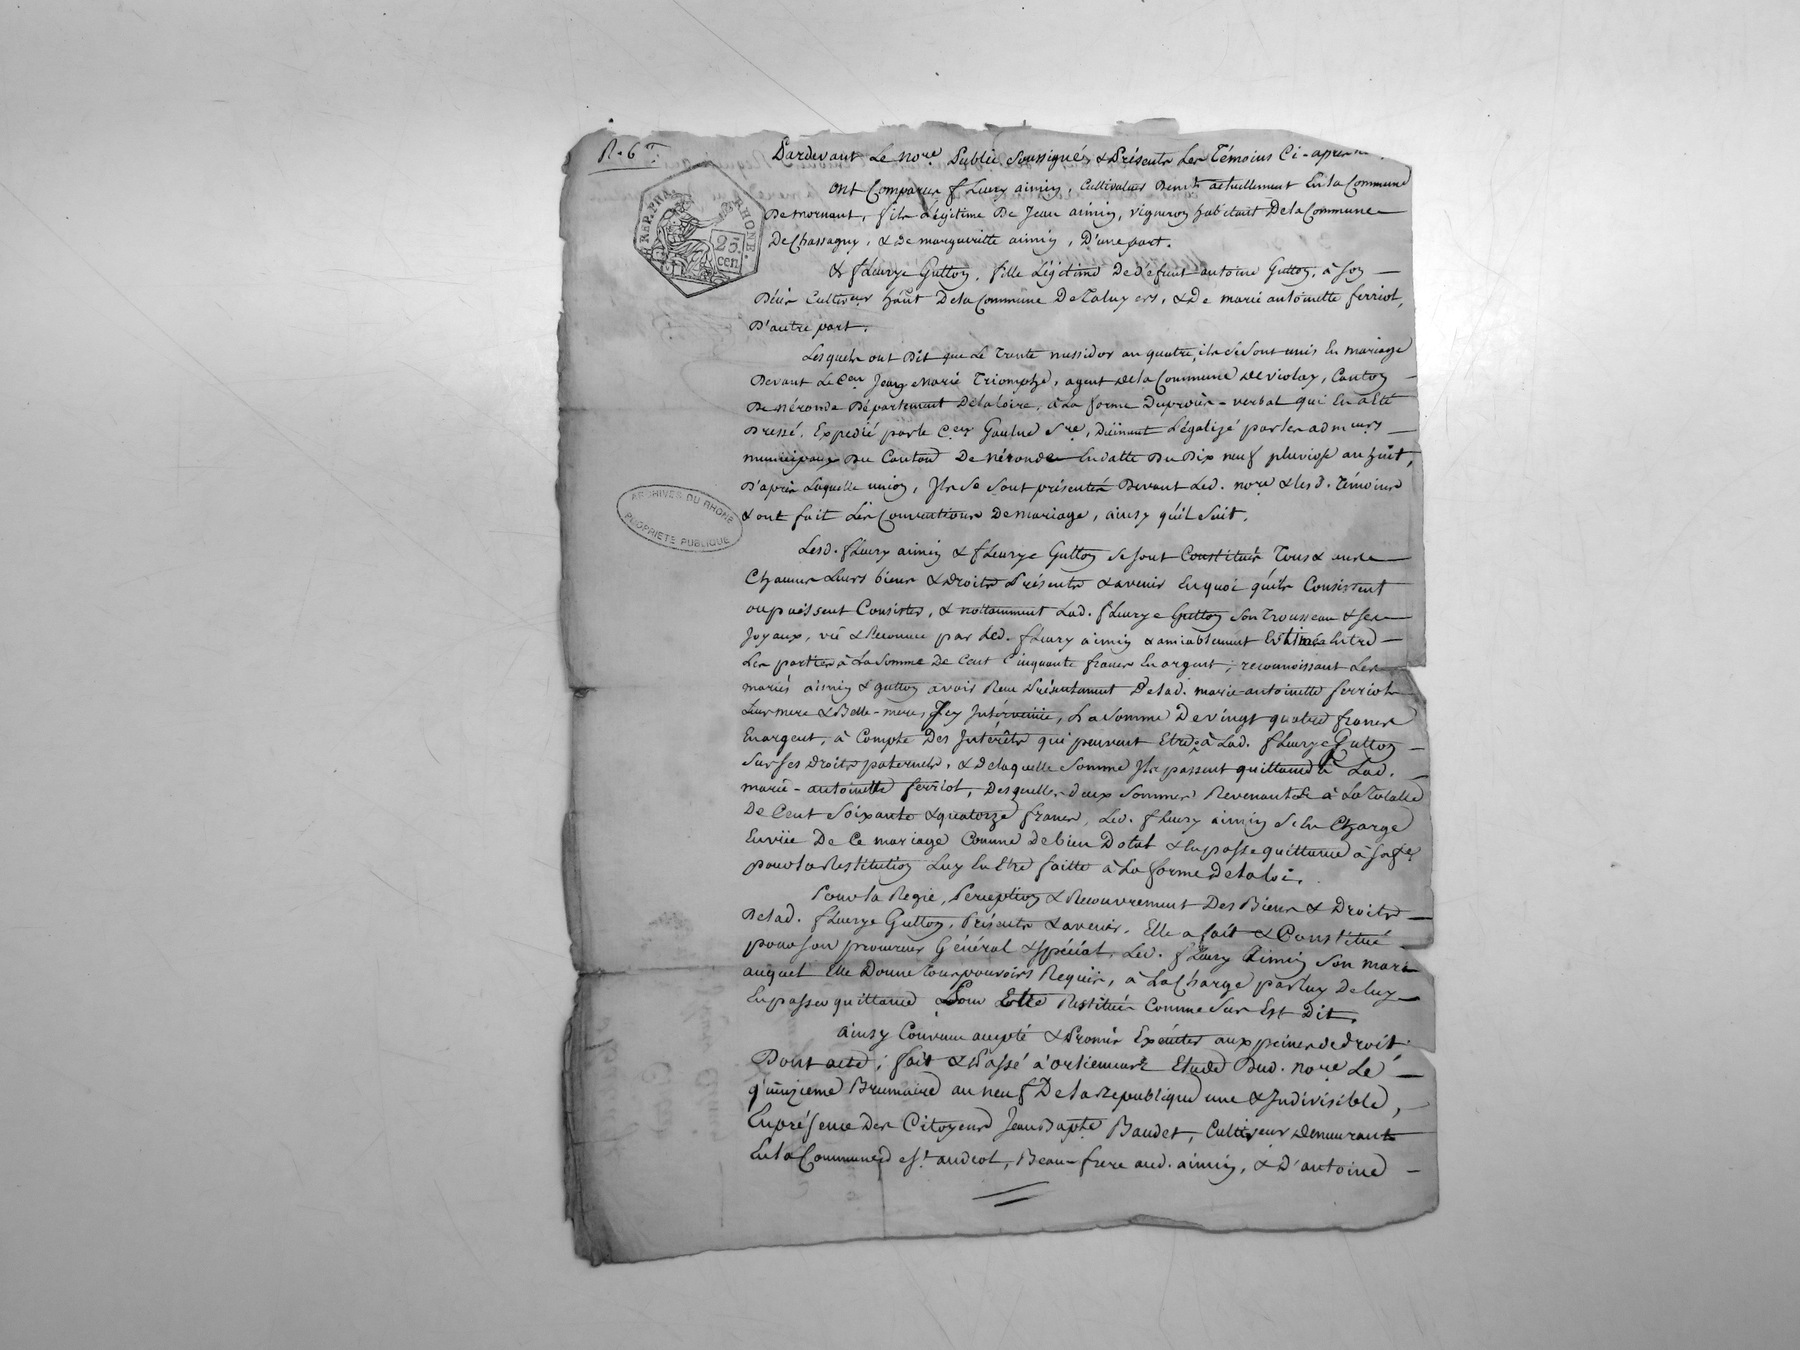 R. 6 f.
RÉP. FRA. RHONE.
25 cen.
Pardevant Le nore Public Soussigné, & Présents Les Témoins Ci-après
ont Comparus fleury aimin, Cultivateur Demt actuellement En la Commune
De mornant, fils Légitime De Jean aimin, vigneron habitant De la Commune
De Chassagny, & De margueritte aimin, D'une part.
& fleurye Gutton, fille Légitime De defunt antoine Gutton, à son
Décès Cultiveur hañt De la Commune De Taluyers, & De marie antoinette ferriol,
D'autre part.
Lesquels ont Dit que Le Trente messidor an quatre, ils se sont unis En mariage
Devant Le Cen Jean Marie Triomphe, agent de la Commune de violay, Canton
De néronde Département De la loire, à La forme Du procès-verbal qui En a Eté
Dressé, Expedié par le Cen Gaulne Sre, Duëment Légalizé par les admeurs
municipaux Du Canton De néronde En datte Du Dix neuf pluviose an huit,
D'après Laquelle union, Ils Se Sont présentés Devant Led. nore & lesd. Témoins
& ont fait Les Conventions De mariage, ainsy qu'il Suit.
ARCHIVES DU RHONE
PROPRIÉTÉ PUBLIQUE
Lesd. fleury aimin & fleurye Gutton se sont Constitués Tous & un
Chacun Leurs biens & Droits Présents & avenir En quoi qu'ils Consistent
ou puissent Consister, & nottamment Lad. fleurye Gutton Son Trousseau & ses
Joyaux, vû & Reconnu par Led. fleury aimin & amiablement Estimés Entre
Les parties à La Somme De Cent Cinquante francs En argent; reconnoissant Les
mariés aimin & gutton avoir Reçu Présentement De lad. marie-antoinette ferriol
Leur mere & Belle-mere, Icy Intervenüe, La Somme De vingt quatre francs
En argent, à Compte Des Interêts qui peuvent Etre à Lad. fleurye Gutton
Sur ses Droits paternels, & De laquelle Somme Ils passent quittance à Lad.
marie-antoinette ferriol, Desquelles deux Sommes Revenant à La Totalle
De Cent Soixante & quatorze francs, Led. fleury aimin Se En Charge
En vüe De Ce mariage Comme De bien Dotal & En passe quittance à sa fe
pour la Restitution Luy En Etre faitte à La forme De la loi.
Pour la Regie, Perception & Recouvrement Des Biens & Droits
De lad. fleurye Gutton, Présents & avenir, Elle a fait & Constitué
pour son procureur Général & Spécial, Led. fleury Aimin Son mari
auquel Elle Donne Tous pouvoirs Requis, à La Charge par luy De luy
En passer quittance Pour Etre Restitués Comme Sus Est Dit.
ainsy Convenu accepté & Promis Exécuter aux peines de droit.
Dont acte; fait & Passé à orlienas Etude Dud. nore Le
quinzieme Brumaire an neuf De la Republique une & Indivisible,
En présence Des Citoyens Jean Bapte Baudet, Cultiveur demeurant
En la Commune de St andeol, Beau-frere aud. aimin, & D'antoine